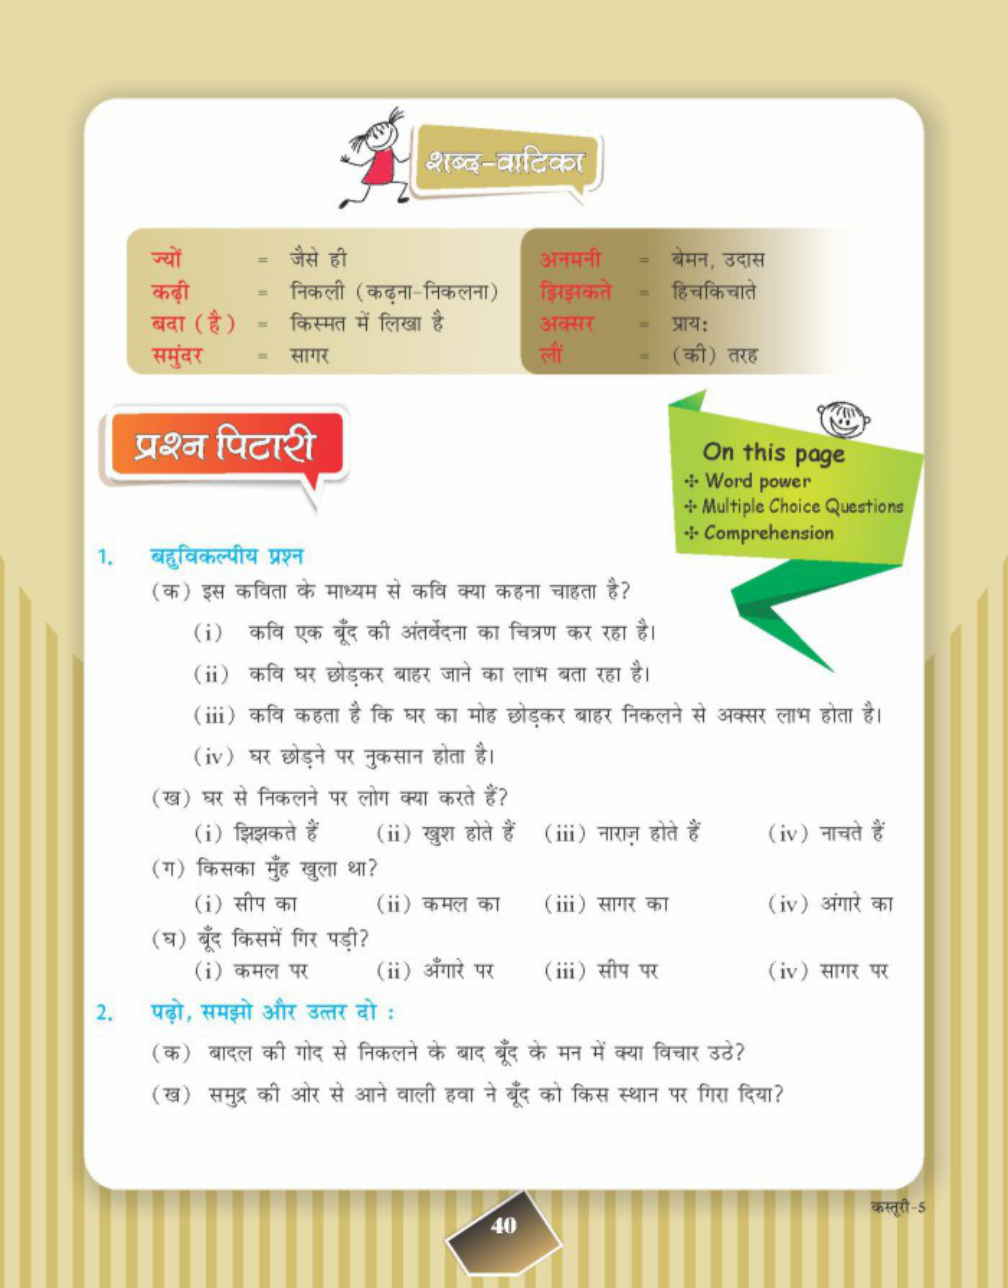 शब्द-वाटिका
ज्यों = जैसे ही
कढ़ी = निकली (कढ़ना-निकलना)
बदा (है) = किस्मत में लिखा है
समुंदर = सागर
अनमनी = बेमन, उदास
झिझकते = हिचकिचाते
अक्सर = प्राय:
लौं = (की) तरह
प्रश्न पिटारी
On this page
✣ Word power
✣ Multiple Choice Questions
✣ Comprehension
1. बहुविकल्पीय प्रश्न
(क) इस कविता के माध्यम से कवि क्या कहना चाहता है?
(i) कवि एक बूँद की अंतर्वेदना का चित्रण कर रहा है।
(ii) कवि घर छोड़कर बाहर जाने का लाभ बता रहा है।
(iii) कवि कहता है कि घर का मोह छोड़कर बाहर निकलने से अक्सर लाभ होता है।
(iv) घर छोड़ने पर नुकसान होता है।
(ख) घर से निकलने पर लोग क्या करते हैं?
(i) झिझकते हैं (ii) खुश होते हैं (iii) नाराज़ होते हैं (iv) नाचते हैं
(ग) किसका मुँह खुला था?
(i) सीप का (ii) कमल का (iii) सागर का (iv) अंगारे का
(घ) बूँद किसमें गिर पड़ी?
(i) कमल पर (ii) अँगारे पर (iii) सीप पर (iv) सागर पर
2. पढ़ो, समझो और उत्तर दो :
(क) बादल की गोद से निकलने के बाद बूँद के मन में क्या विचार उठे?
(ख) समुद्र की ओर से आने वाली हवा ने बूँद को किस स्थान पर गिरा दिया?
कस्तूरी-5
40